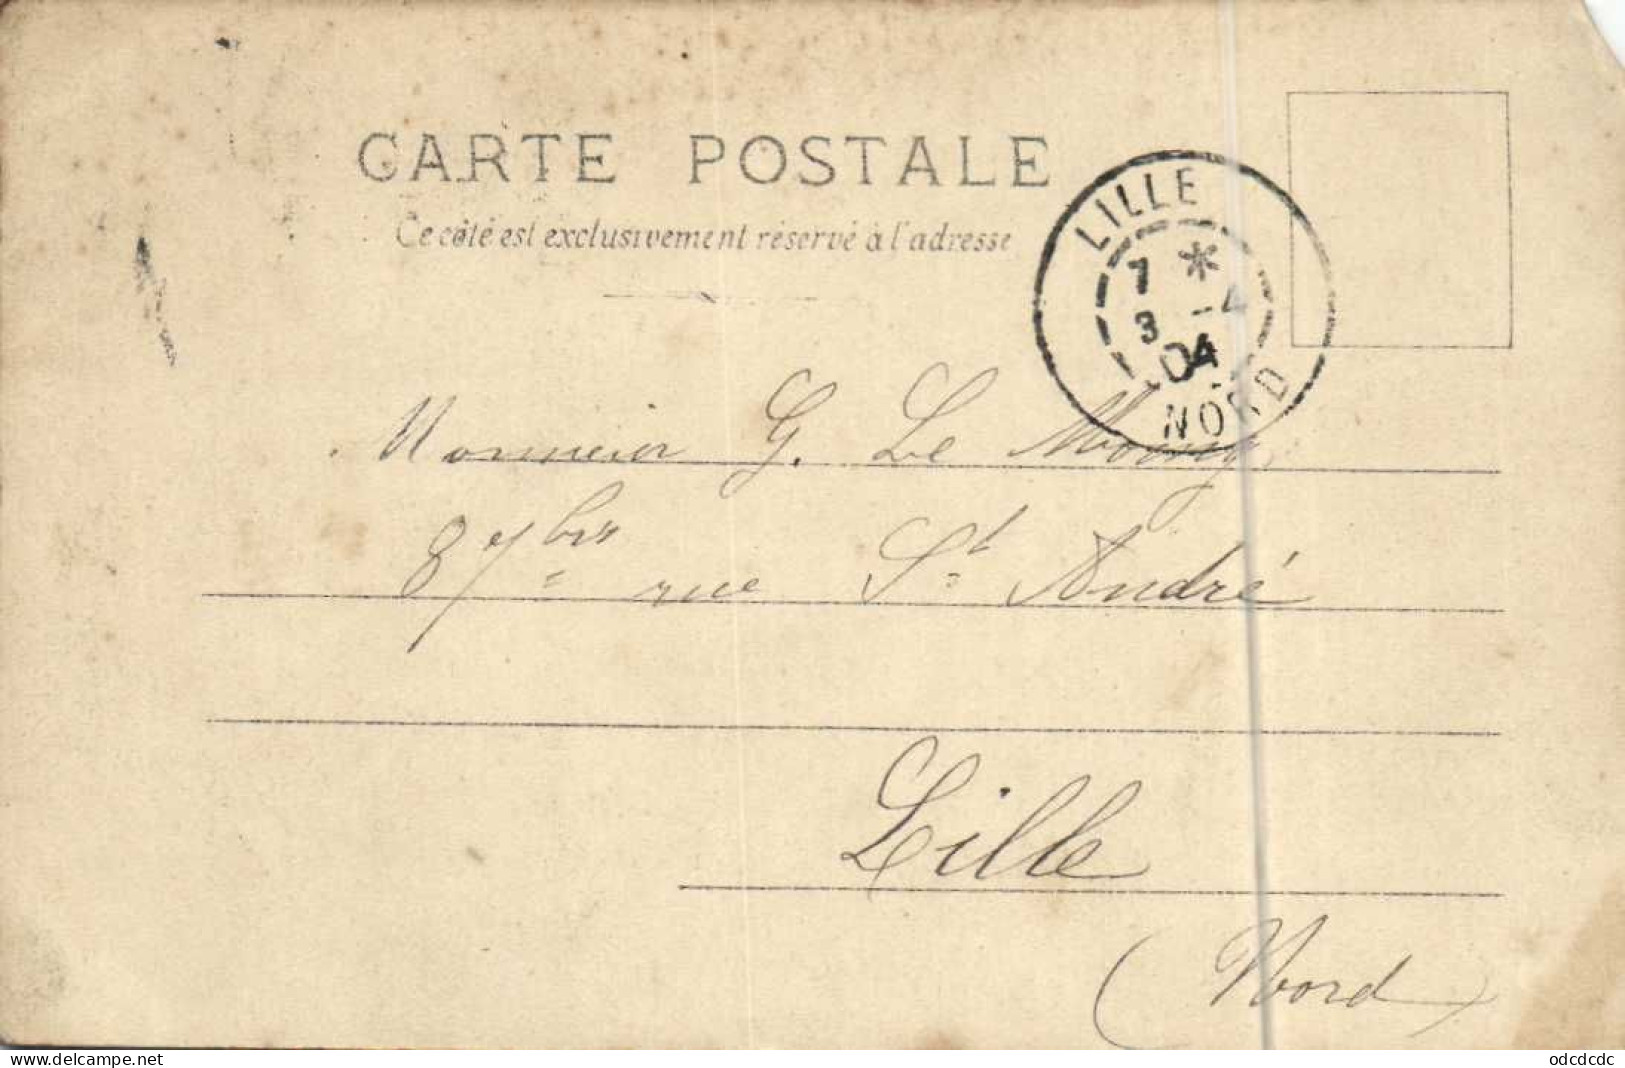 CARTE POSTALE
Ce côté est exclusivement réservé à l'adresse
LILLE
7 *
3 -4
04
NORD
Monsieur G. Le
87 bis rue St André
Lille
(Nord)
www.delcampe.net
odcdcdc